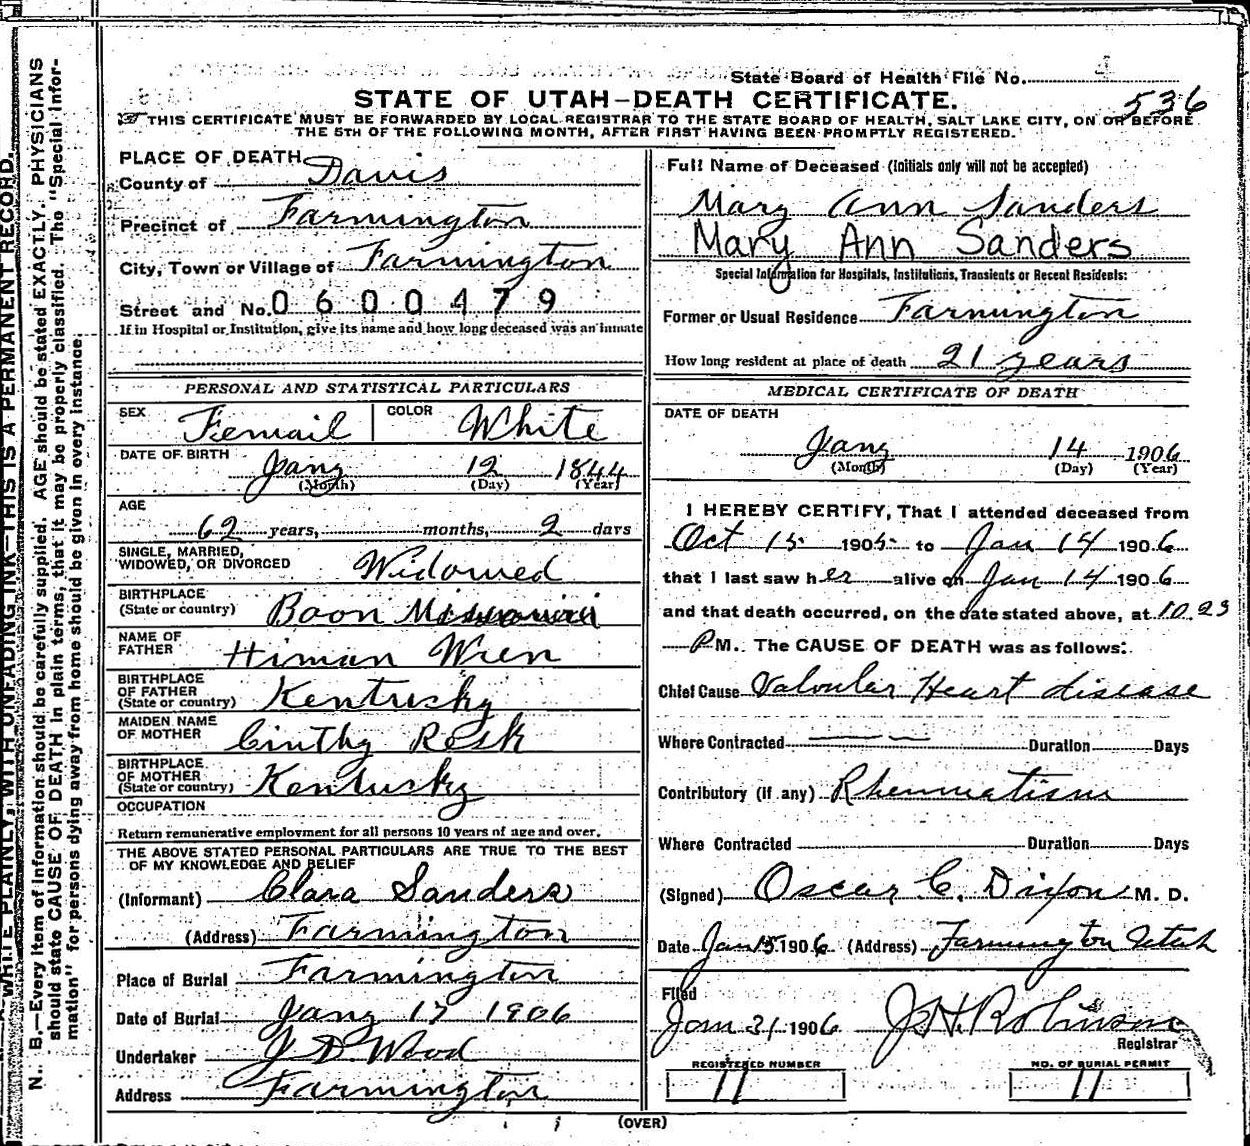 State Board of Health File No.
STATE OF UTAH—DEATH CERTIFICATE.
536
THIS CERTIFICATE MUST BE FORWARDED BY LOCAL REGISTRAR TO THE STATE BOARD OF HEALTH, SALT LAKE CITY, ON OR BEFORE
THE 5TH OF THE FOLLOWING MONTH, AFTER FIRST HAVING BEEN PROMPTLY REGISTERED.
PLACE OF DEATH
County of Davis
Precinct of Farmington
City, Town or Village of Farmington
Street and No. 0600479
If in Hospital or Institution, give its name and how long deceased was an inmate
PERSONAL AND STATISTICAL PARTICULARS
SEX Femail COLOR White
DATE OF BIRTH Jany 12 1844
(Month) (Day) (Year)
AGE
62 years, months, 2 days
SINGLE, MARRIED,
WIDOWED, OR DIVORCED Widowed
BIRTHPLACE
(State or country) Boon
NAME OF
FATHER Himan Wren
BIRTHPLACE
OF FATHER
(State or country) Kentucky
MAIDEN NAME
OF MOTHER Cinthy Resk
BIRTHPLACE
OF MOTHER
(State or country) Kentucky
OCCUPATION
Return remunerative employment for all persons 10 years of age and over.
THE ABOVE STATED PERSONAL PARTICULARS ARE TRUE TO THE BEST
OF MY KNOWLEDGE AND BELIEF
(Informant) Clara Sanders
(Address) Farmington
Place of Burial Farmington
Date of Burial Jany 17 1906
Undertaker J. D. Wood
Address Farmington
Full Name of Deceased (Initials only will not be accepted)
Mary Ann Sanders
Mary Ann Sanders
Special Information for Hospitals, Institutions, Transients or Recent Residents:
Former or Usual Residence Farmington
How long resident at place of death 21 years
MEDICAL CERTIFICATE OF DEATH
DATE OF DEATH
Jany 14 1906
(Month) (Day) (Year)
I HEREBY CERTIFY, That I attended deceased from
Oct 15 1905 to Jan 14 1906
that I last saw her alive on Jan 14 1906
and that death occurred, on the date stated above, at 10.23
P M. The CAUSE OF DEATH was as follows:
Chief Cause Valvular Heart disease
Where Contracted Duration Days
Contributory (if any) Rheumatism
Where Contracted Duration Days
(Signed) Oscar C. Dixon M. D.
Date Jan 15 1906 (Address) Farmington Utah
Filed
Jan 31 1906 J. H. Robinson
Registrar
REGISTERED NUMBER NO. OF BURIAL PERMIT
11 11
(OVER)
WRITE PLAINLY, WITH UNFADING INK—THIS IS A PERMANENT RECORD.
N. B.—Every item of information should be carefully supplied. AGE should be stated EXACTLY. PHYSICIANS
should state CAUSE OF DEATH in plain terms, that it may be properly classified. The "Special Infor-
mation" for persons dying away from home should be given in every instance.